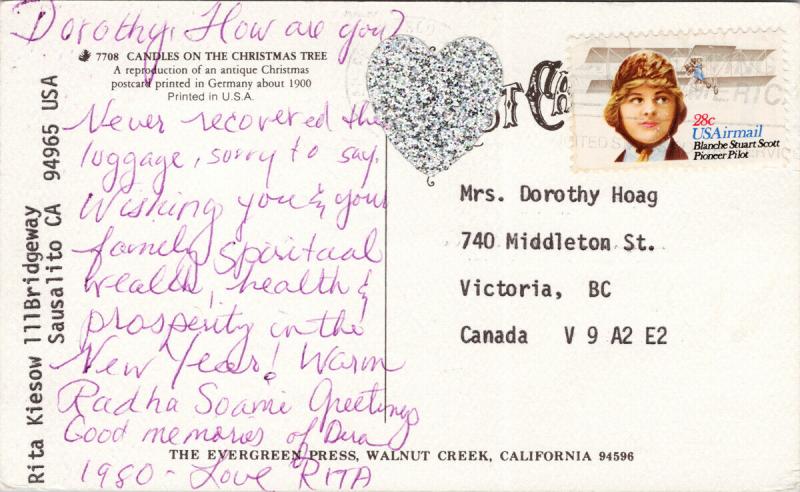 Dorothy, How are you?
7708 CANDLES ON THE CHRISTMAS TREE
A reproduction of an antique Christmas
postcard printed in Germany about 1900
Printed in U.S.A.
Never recovered the
luggage, sorry to say.
Wishing you & your
family spiritual
wealth, health &
prosperity in the
New Year! Warm
Radha Soami Greetings
Good memories of Dera
1980 - Love RITA
Rita Kiesow 111Bridgeway
Sausalito CA 94965 USA
28c
USAirmail
Blanche Stuart Scott
Pioneer Pilot
Mrs. Dorothy Hoag
740 Middleton St.
Victoria, BC
Canada V 9 A2 E2
THE EVERGREEN PRESS, WALNUT CREEK, CALIFORNIA 94596